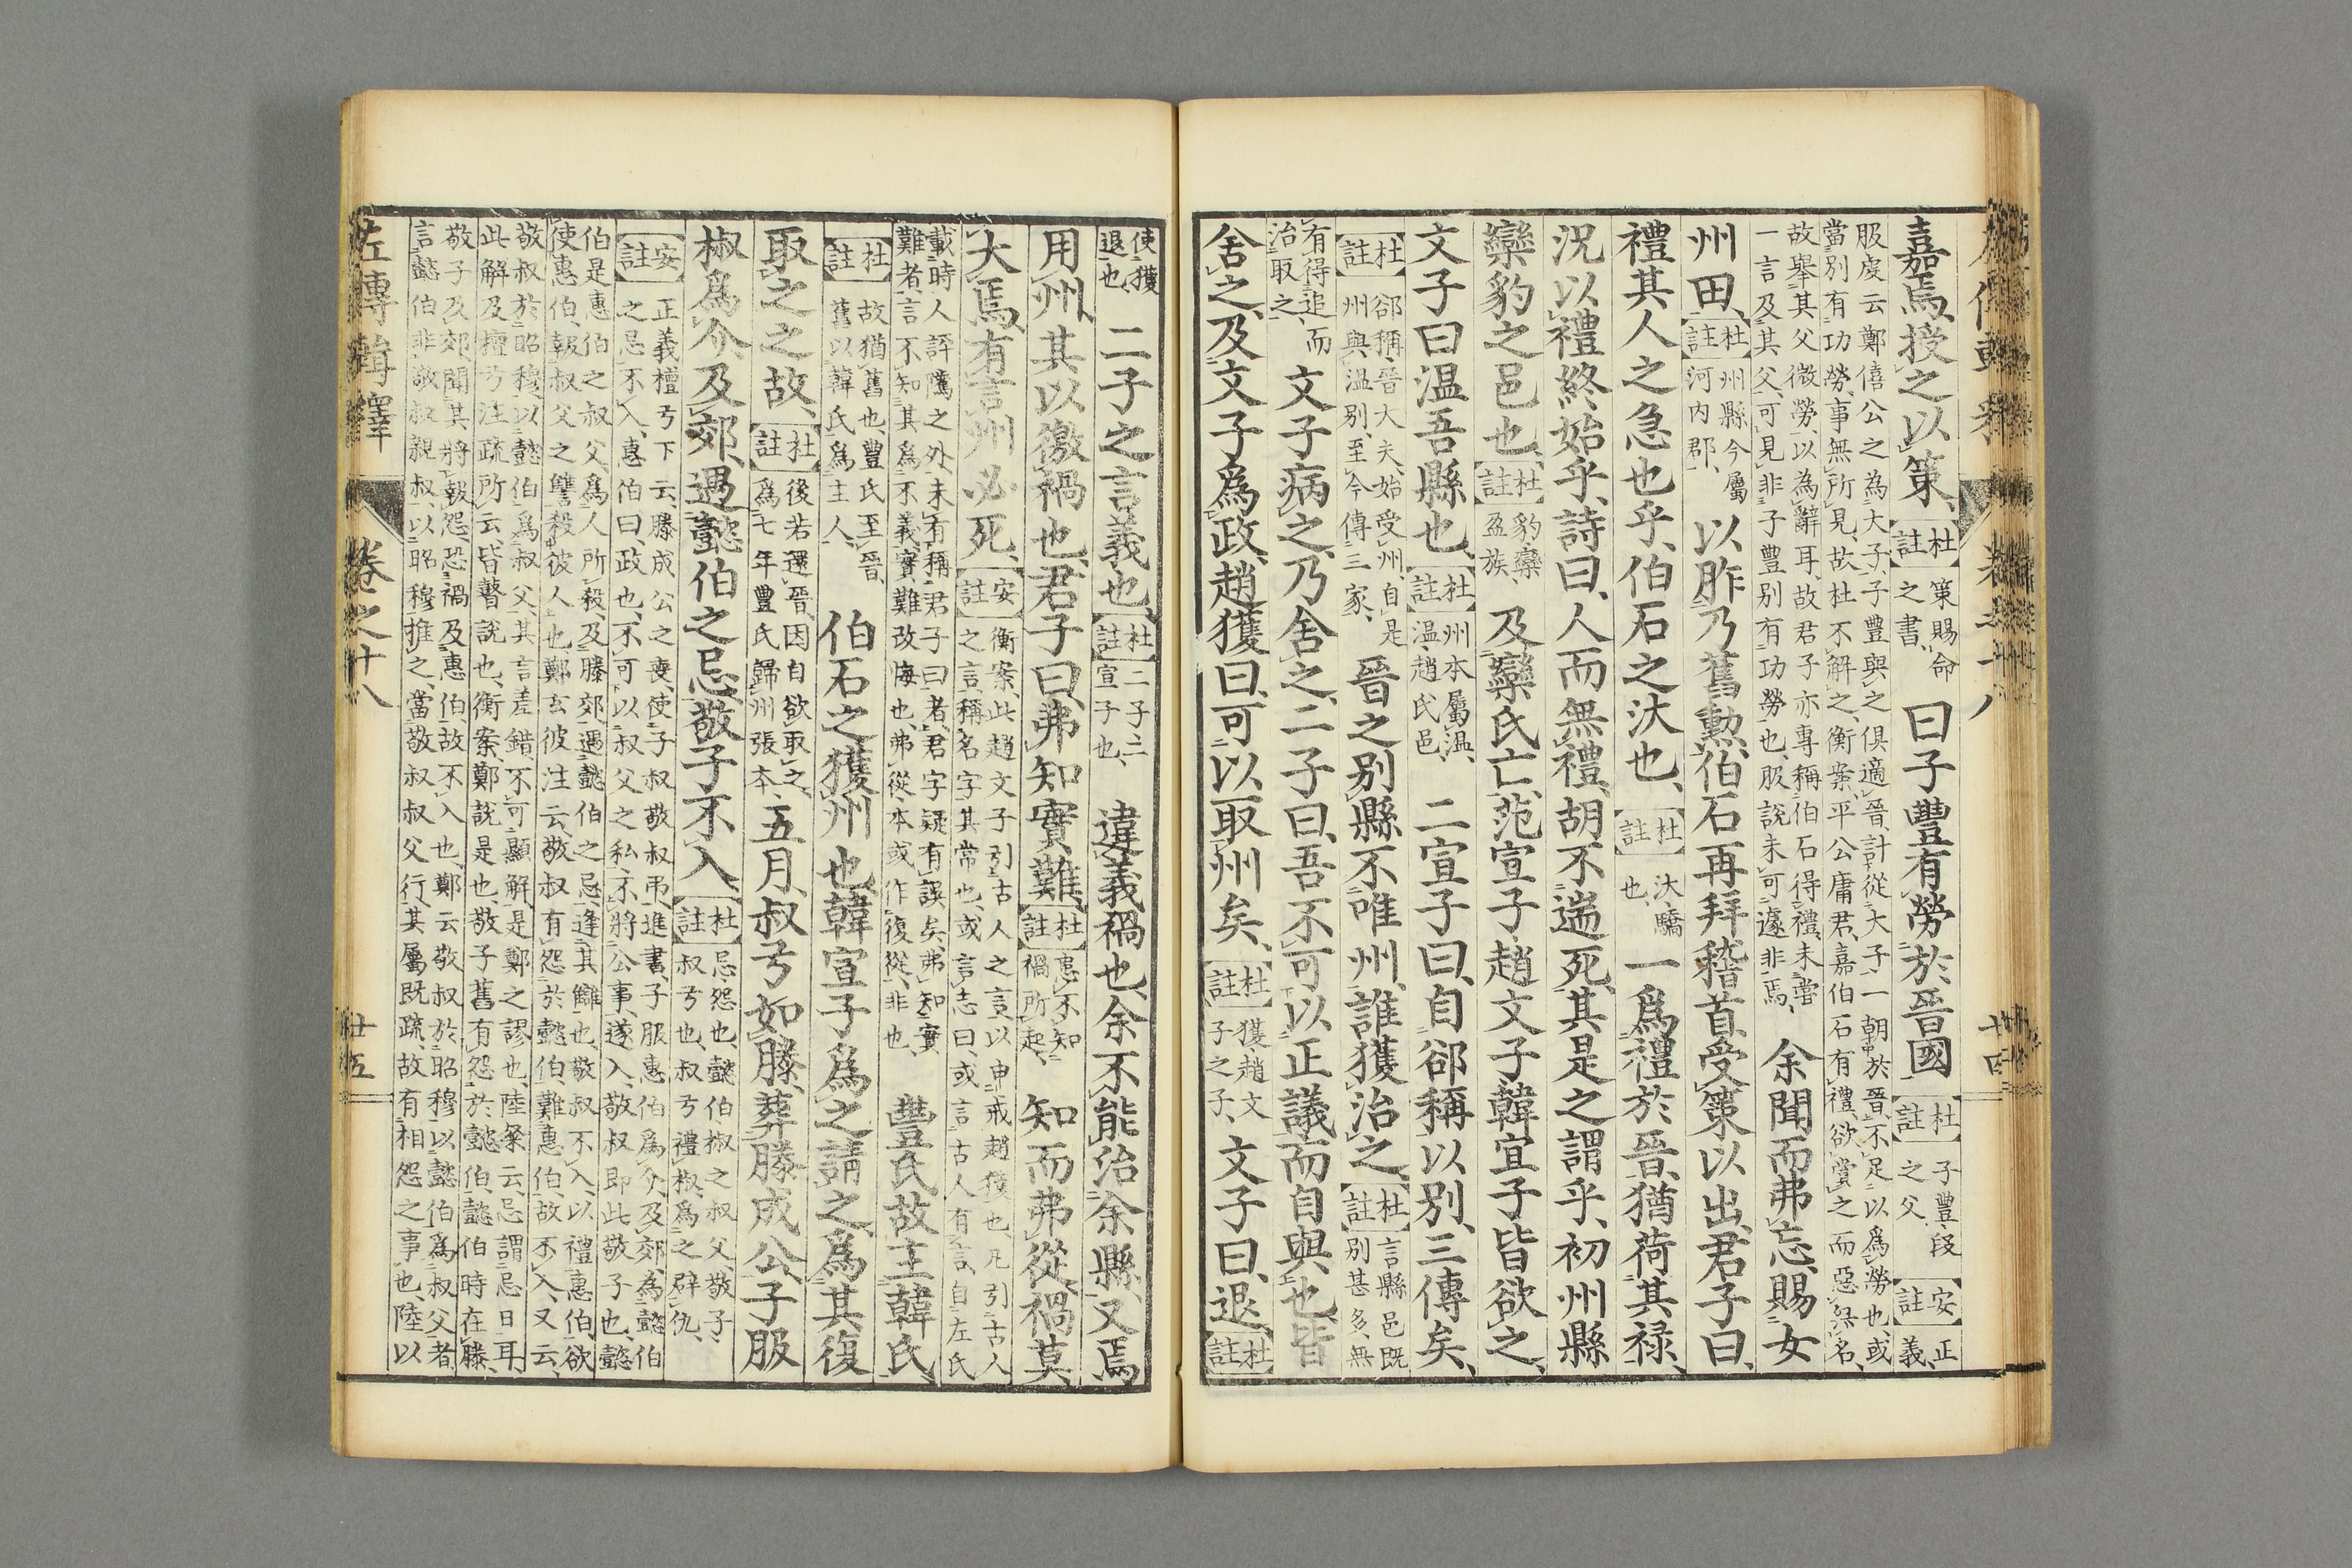 嘉焉、授之以策、【杜註】策賜命之書、曰子豐有勞於晉國【杜註】子豐、段之父【安註】正義、
服虔云鄭僖公之為大子、子豐與之俱適晉、計從大子一朝於晉、不足以為勞也、或
當別有功勞、事無所見、故杜不解之、衡案、平公庸君、嘉伯石有禮、欲賞之而惡無名、
故舉其父微勞、以為辭耳、故君子亦專稱伯石得禮、未嘗
一言及其父、可見非子豐別有功勞也、服說未可遽非焉、余聞而弗忘、賜女
州田、【杜註】州縣今屬河内郡、以胙乃舊勲、伯石再拜稽首、受策以出、君子曰、
禮其人之急也乎、伯石之汏也、【杜註】汏、驕也、一爲禮於晉、猶荷其禄、
況以禮終始乎、詩曰、人而無禮、胡不遄死、其是之謂乎、初州縣
欒豹之邑也、【杜註】豹、欒盈族、及欒氏亡、范宣子趙文子韓宣子皆欲之、
文子曰温吾縣也、【杜註】州本屬温、温、趙氏邑、二宣子曰、自郤稱以別、三傳矣、
【杜註】郤稱、晉大夫、始受州、自是州與温別、至今傳三家、晉之別縣不唯州、誰獲治之、【杜註】言縣邑既別甚多、無
有得追而治取之、文子病之、乃舍之、二子曰、吾不可以正議而自與也、皆
舍之、及文子爲政、趙獲曰、可以取州矣、【杜註】獲、趙文子之子、文子曰、退、【杜註】
使獲退也、二子之言義也、【杜註】二子二宣子也、違義禍也、余不能治余縣、又焉
用州、其以徼禍也、君子曰、弗知實難、【杜註】患不知禍所起、知而弗從、禍莫
大焉、有言州必死、【安註】衡案、此趙文子引古人之言以申戒趙獲也、凡引古人之言、稱名字其常也、或言志曰、或言古人有言、自左氏
載時人評隲之外、未有稱君子曰者、君字疑有誤矣、弗知實
難者、言不知其爲不義、實難改悔也、弗從、本或作復從、非也、豐氏故主韓氏、
【杜註】故猶舊也、豐氏至晉、舊以韓氏爲主人、伯石之獲州也、韓宣子爲之請之、爲其復
取之之故、【杜註】後若還晉、因自欲取之、爲七年豐氏歸州張本、五月、叔弓如滕、葬滕成公、子服
椒爲介、及郊、遇懿伯之忌、敬子不入、【杜註】忌、怨也、懿伯、椒之叔父、敬子、叔弓也、叔弓禮椒、爲之辟仇、
【安註】正義檀弓下云、滕成公之喪、使子叔敬叔弔、進書、子服惠伯爲介、及郊、為懿伯之忌不入、惠伯曰、政也、不可以叔父之私、不將公事、遂入、敬叔即此敬子也、懿
伯是惠伯之叔父、爲人所殺、及滕郊、遇懿伯之忌、逢其讎也、敬叔不入、以禮惠伯、欲
使惠伯報叔父之讐、殺彼人也、鄭玄彼注云、敬叔有怨於懿伯、難惠伯、故不入、又云、
敬叔於昭穆、以懿伯爲叔父、其言差錯、不可顯解、是鄭之謬也、陸粲云、忌謂忌日耳、
此解及檀弓注疏所云、皆瞽說也、衡案、鄭說是也、敬子舊有怨於懿伯、懿伯時在滕、
敬子及郊、聞其將報怨、恐禍及惠伯、故不入也、鄭云敬叔於昭穆以懿伯爲叔父者、
言懿伯非敬叔親叔、以昭穆推之、當敬叔叔父行、其屬既疏、故有相怨之事也、陸以
左傳輯釋　卷之十八　廿五